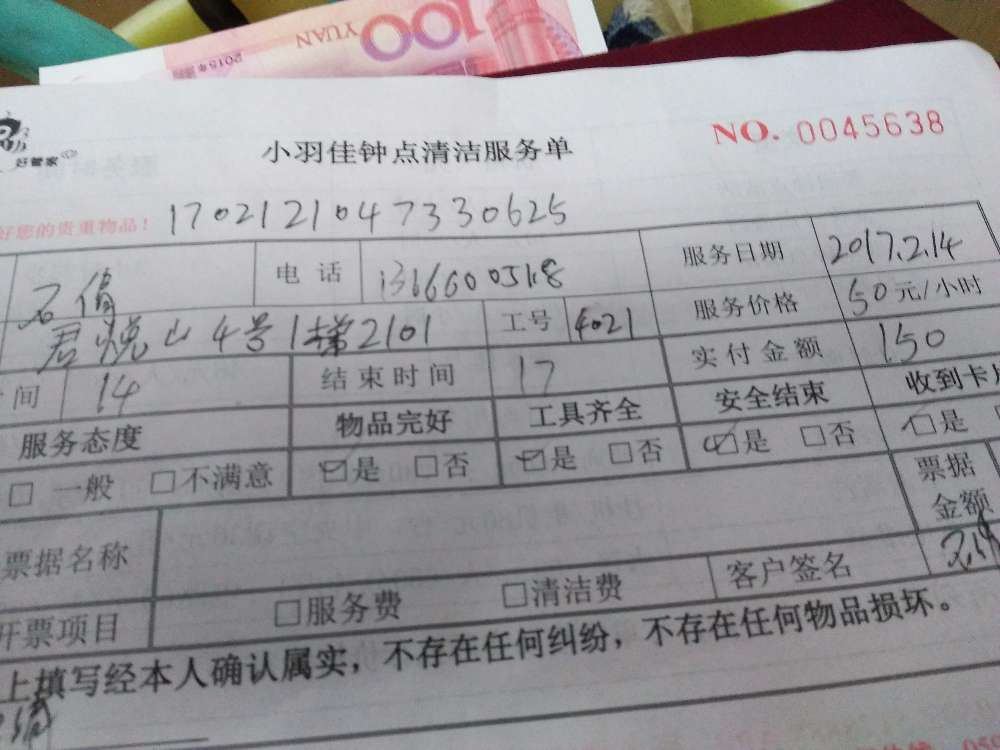 YUAN 100
2015年版
好管家
小羽佳钟点清洁服务单
NO. 0045638
好您的贵重物品！ 1702121047330625
石倩 电话 服务日期 2017.2.14
君悦山4号1梯2101 工号 4021 服务价格 50元/小时
间 14 结束时间 17 实付金额 150
服务态度 物品完好 工具齐全 安全结束 收到卡
□ 一般 □不满意 ☑是 □否 ☑是 □否 ☑是 □否 ☑是
票据名称 票据金额
开票项目 □服务费 □清洁费 客户签名
上填写经本人确认属实，不存在任何纠纷，不存在任何物品损坏。